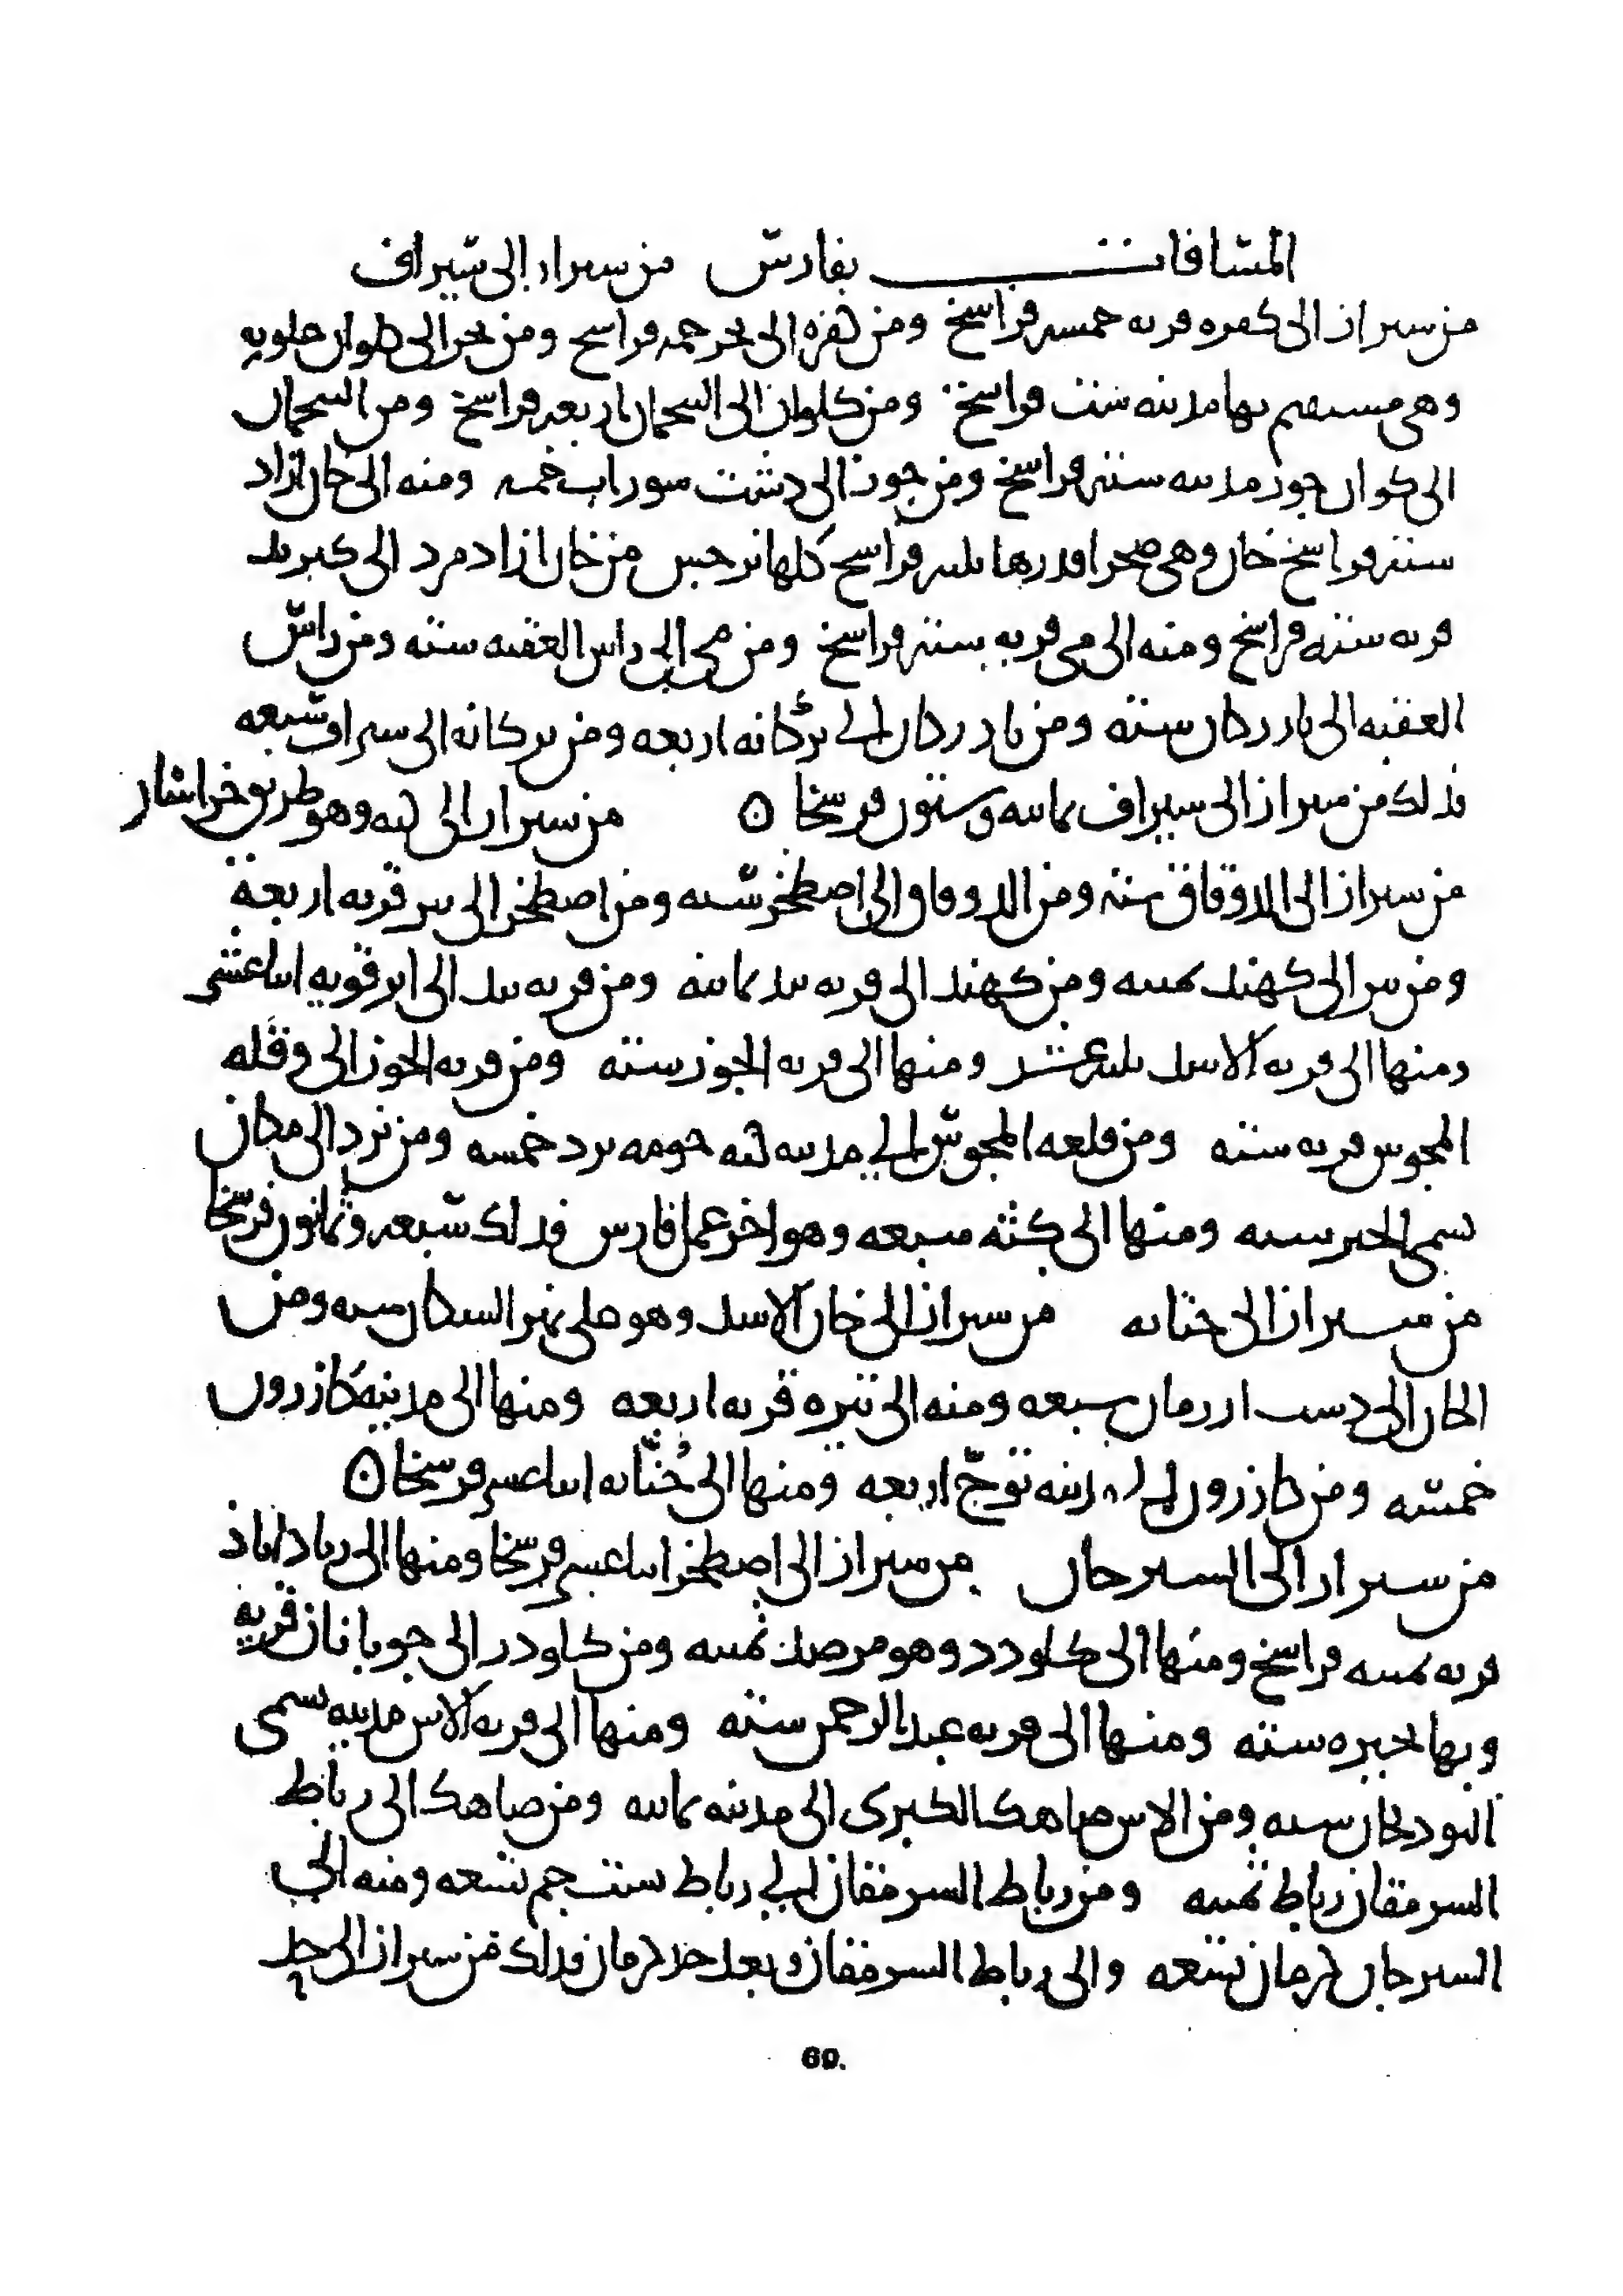 المسافات بفارس من سيراز إلى سيراف
من سيراز الى كفره قريه خمسه فراسخ ومن كفره الى بحر خمسه فراسخ ومن بحر الى كلوان
وهي بها مدينه ست فراسخ ومن كلوان الى السحمان اربعه فراسخ ومن السحمان
الى كوان جور مدينه سته فراسخ ومن جور الى دشت سوراب خمسه ومنه الى خان ازاد
سته فراسخ خان وهي صحرا قدرها ثلثه فراسخ كلها نرجس من خان ازاد مرد الى كيرند
قريه سته فراسخ ومنه الى مي قريه سته فراسخ ومن مي الى راس العقبه سته ومن راس
العقبه الى بادركان سته ومن بادركان الى بركانه اربعه ومن بركانه الى سيراف سبعه
فذلك من سيراز الى سيراف ثمانيه وستون فرسخا ٥ من سيراز الى كثه وهو طريق خراسان
من سيراز الى الدوقاق سته ومن الدوقاق الى اصطخر سته ومن اصطخر الى بير قريه اربعة
ومن بير الى كهند ثمنيه ومن كهند الى قريه بيد ثمانيه ومن قريه بيد الى ابرقويه اثنا عشر
ومنها الى قريه الاسد ثلثه عشر ومنها الى قريه الجوز سته ومن قريه الجوز الى وقلعه
المجوس قريه سته ومن قلعه المجوس الى مدينه كثه حومه يزد خمسه ومن يزد الى مكان
يسمى سته ومنها الى كثه سبعه وهو اخر عمل فارس فذلك سبعه وثمانون فرسخا
من سيراز الى جنابه من سيراز الى خان الاسد وهو على نهر السكان سته ومن
الخان الى دست ارزمان سبعه ومنه الى تيره قريه اربعه ومنها الى مدينه كازرون
خمسه ومن كازرون الى مدينه توج اربعه ومنها الى جنابه اثنا عشر فرسخا ٥
من سيراز الى السيرجان من سيراز الى اصطخر اثنا عشر فرسخا ومنها الى زياداباذ
قريه ثمنيه فراسخ ومنها الى كلودر وهو مرصد ثمنيه ومن كلودر الى جوبانان قرية
وبها بحيره سته ومنها الى قريه عبد الرحمن سته ومنها الى قريه الاس مدينه تسمى
البودنجان سته ومن الاس صاهك الكبرى الى مدينه ثمانيه ومن صاهك الى رباط
السرمقان رباط ثمنيه ومن رباط السرمقان الى رباط ست جم تسعه ومنه الى
السيرجان كرمان تسعه والى رباط السرمقان وبعد كرمان فذلك من سيراز الى حد
69.